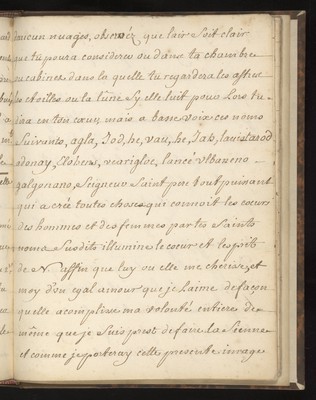 aucun nuages, observéz que lair Soit clair
que tu poura considerer ou dans ta chambre
ou cabinet dans la quelle tu regardera les astres
les etoilles ou la lune Sy elle luit pour Lors tu
dira en ton cœur mais a basse voix ces noms
Suivants, agla, Jod, he, vau, he, Jah,
adonay, Seigneur Saint pere tout puissant
qui a créé toutes choses qui connoit les cœurs
des hommes et des femmes par tes Saints
noms Susdits illumine le coeur et lesprit
de N. affin que luy ou elle me cherisse, et
moy d'un egal amour que je L'aime de façon
quelle acomplisse ma volonté entiere de
même que je Suis prest de faire la Sienne
et comme je porteray cette presente image